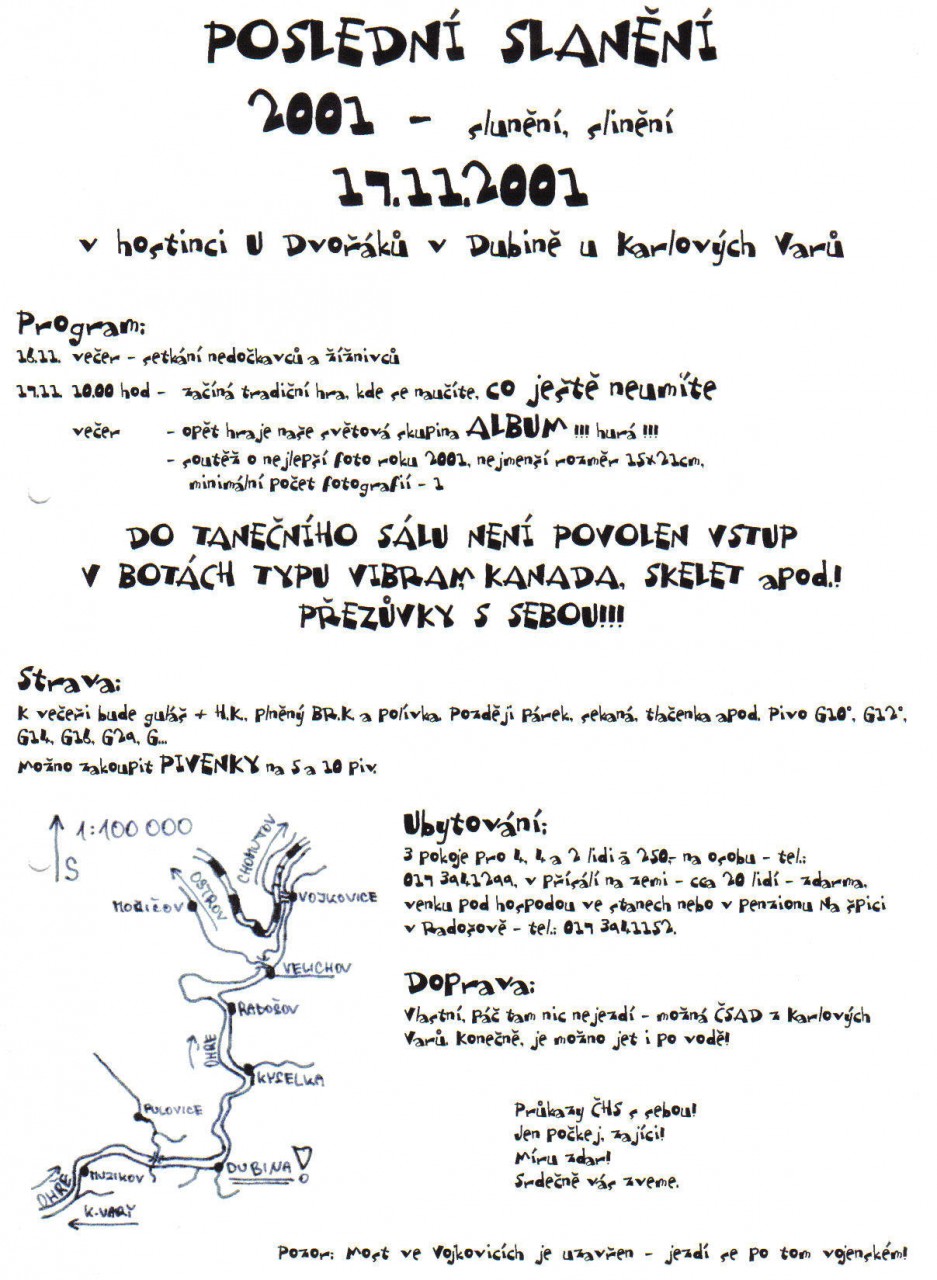 POSLEDNÍ SLANĚNÍ
2001 - slunění, slinění
17.11.2001
v hostinci U Dvořáků v Dubině u Karlových Varů
Program:
16.11. večer - setkání nedočkavců a žíznivců
17.11. 10.00 hod - začíná tradiční hra, kde se naučíte, co ještě neumíte
večer - opět hraje naše světová skupina ALBUM !!! hurá !!!
- soutěž o nejlepší foto roku 2001, nejmenší rozměr 15x21cm,
minimální počet fotografií - 1
DO TANEČNÍHO SÁLU NENÍ POVOLEN VSTUP
V BOTÁCH TYPU VIBRAM, KANADA, SKELET apod.!
PŘEZŮVKY S SEBOU!!!
Strava:
K večeři bude guláš + H.K., plněný BR.K a polívka. Později párek, sekaná, tlačenka apod. Pivo G10°, G12°,
G14, G16, G29, G...
Možno zakoupit PIVENKY na 5 a 10 piv.
1:100 000
S
CHOMUTOV
OSTROV
MOŘIČOV
VOJKOVICE
VELICHOV
RADOŠOV
OHŘE
KYSELKA
PULOVICE
DUBINA!
MUZIKOV
OHŘE
K.VARY
Ubytování:
3 pokoje pro 4, 4 a 2 lidi à 250,- na osobu - tel.:
017 3941299, v přísálí na zemi - cca 20 lidí - zdarma,
venku pod hospodou ve stanech nebo v penzionu Na špici
v Radošově - tel.: 017 3941152.
Doprava:
Vlastní, páč tam nic nejezdí - možná ČSAD z Karlových
Varů. Konečně, je možno jet i po vodě!
Průkazy ČHS s sebou!
Jen počkej, zajíci!
Míru zdar!
Srdečně vás zveme.
Pozor: Most ve Vojkovicích je uzavřen - jezdí se po tom vojenském!